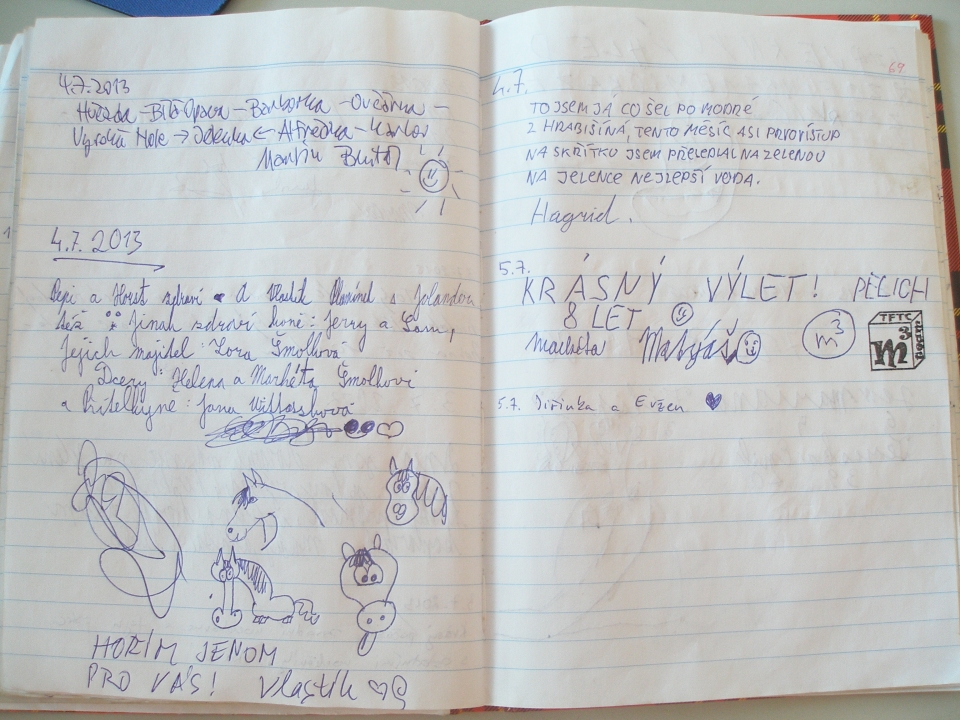 4.7.2013
Hvězda - Bílá Opava - Barborka - Ovčárna -
Vysoká Hole → ← Alfrédka - Karlov
Martin
4.7.2013
Pepi a Horst zdraví a Vlastík s Jolandou
též Jinak zdraví koně: Jerry a Sam,
jejich majitel: Lora Šmolková
Dcery: Helena a Markéta Šmolkovi
a Přítelkyně: Jana
HOŘÍM JENOM
PRO VÁS! Vlastík
69
4.7.
TO JSEM JÁ CO ŠEL PO MODRÉ
Z HRABIŠINA, TENTO MĚSÍC ASI PRVOVÝSTUP
NA SKŘÍTKU JSEM PŘELEDLAL NA ZELENOU
NA JELENCE NEJLEPŠÍ VODA.
Hagrid.
5.7.
KRÁSNÝ VÝLET! PĚLICH
8 LET
Markéta Matyáš m³ TFTC m³
5.7. Jiřinka a Evžen